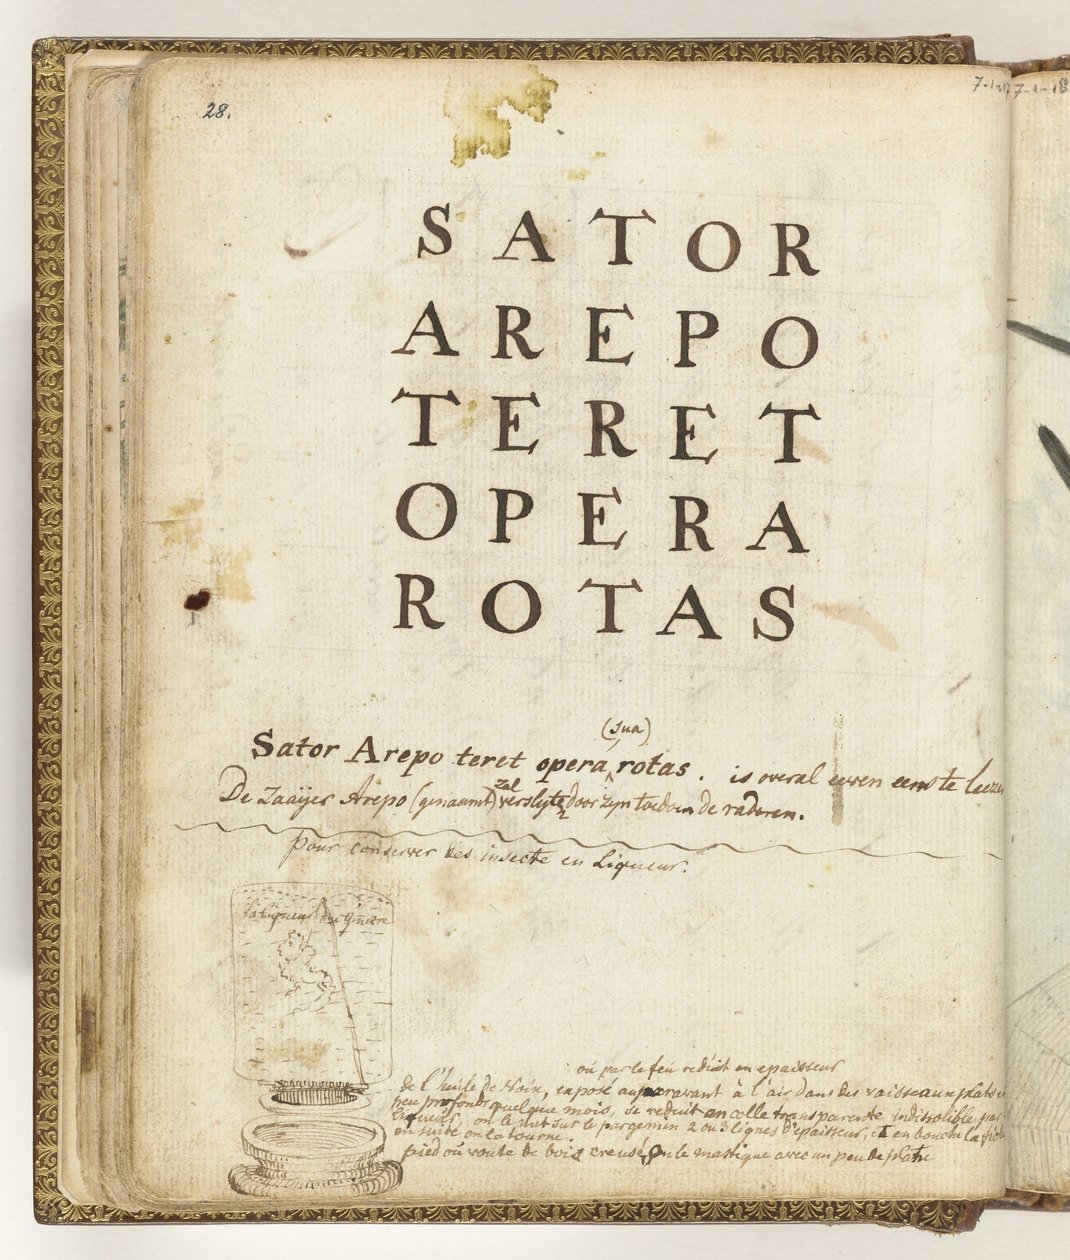 28.
7-1-17 7-1-18
S A T O R
A R E P O
T E R E T
O P E R A
R O T A S
(sua)
Sator Arepo teret opera rotas. is overal even eens te leezen
De Zaaijer Arepo (genaamt) zal verslyten door zyn toedoen de raderen.
Pour conserver des insecte en Liqueur.
la Liqueur de
ou par le feu reduit en epaisseur
de l'huile de Noix, exposé auparavant à l'air dans des vaisseaux plats et
peu profond quelque mois, se reduit en colle transparente indissolible par
liqueur, on le met sur le pargemin 2 ou 3 lignes d'epaisseur, et en bouche la fiole
en suite on la tourne.
pied ou voute de bois creusé, on le mastique avec un peu de platre